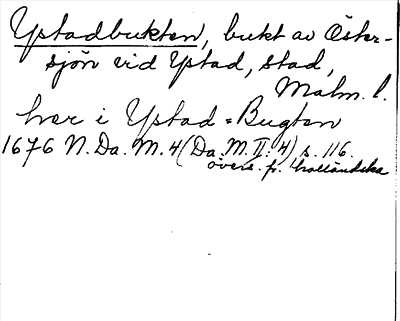 Ystadbukten, bukt av Öster-
sjön vid Ystad, stad,
Malm. l.
her i Ystad=Bugten
1676 N. Da. M. 4 (Da. M. II:4) s. 116.
övers. fr. holländska